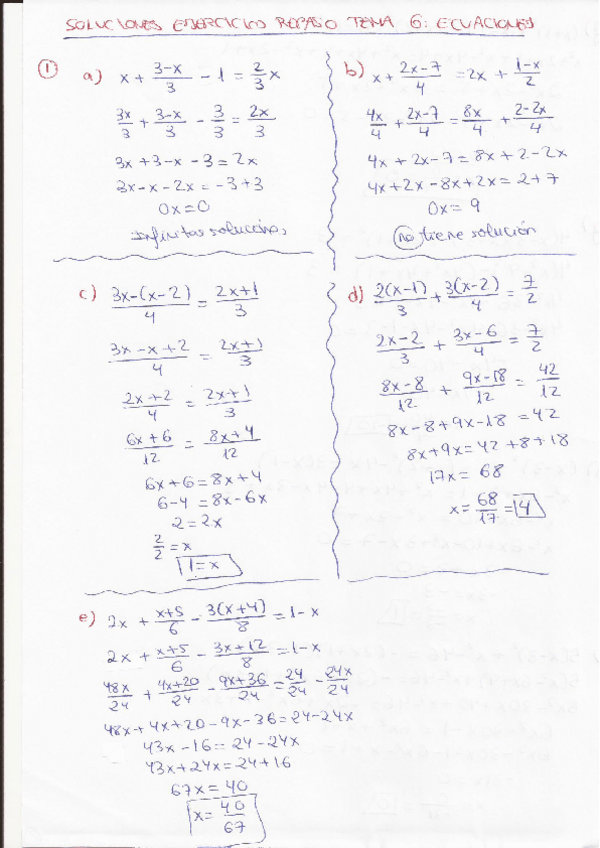 SOLUCIONES EJERCICIO REPASO TEMA 6: ECUACIONES
① a) x + (3-x)/3 - 1 = 2/3 x
3x/3 + (3-x)/3 - 3/3 = 2x/3
3x + 3 - x - 3 = 2x
3x - x - 2x = -3 + 3
0x = 0
Infinitas soluciones
b) x + (2x-7)/4 = 2x + (1-x)/2
4x/4 + (2x-7)/4 = 8x/4 + (2-2x)/4
4x + 2x - 7 = 8x + 2 - 2x
4x + 2x - 8x + 2x = 2 + 7
0x = 9
No tiene solución
c) (3x-(x-2))/4 = (2x+1)/3
(3x-x+2)/4 = (2x+1)/3
(2x+2)/4 = (2x+1)/3
(6x+6)/12 = (8x+4)/12
6x + 6 = 8x + 4
6 - 4 = 8x - 6x
2 = 2x
2/2 = x
1 = x
d) 2(x-1)/3 + 3(x-2)/4 = 7/2
(2x-2)/3 + (3x-6)/4 = 7/2
(8x-8)/12 + (9x-18)/12 = 42/12
8x - 8 + 9x - 18 = 42
8x + 9x = 42 + 8 + 18
17x = 68
x = 68/17 = 14
e) 2x + (x+5)/6 - 3(x+4)/8 = 1 - x
2x + (x+5)/6 - (3x+12)/8 = 1 - x
48x/24 + (4x+20)/24 - (9x+36)/24 = 24/24 - 24x/24
48x + 4x + 20 - 9x - 36 = 24 - 24x
43x - 16 = 24 - 24x
43x + 24x = 24 + 16
67x = 40
x = 40/67